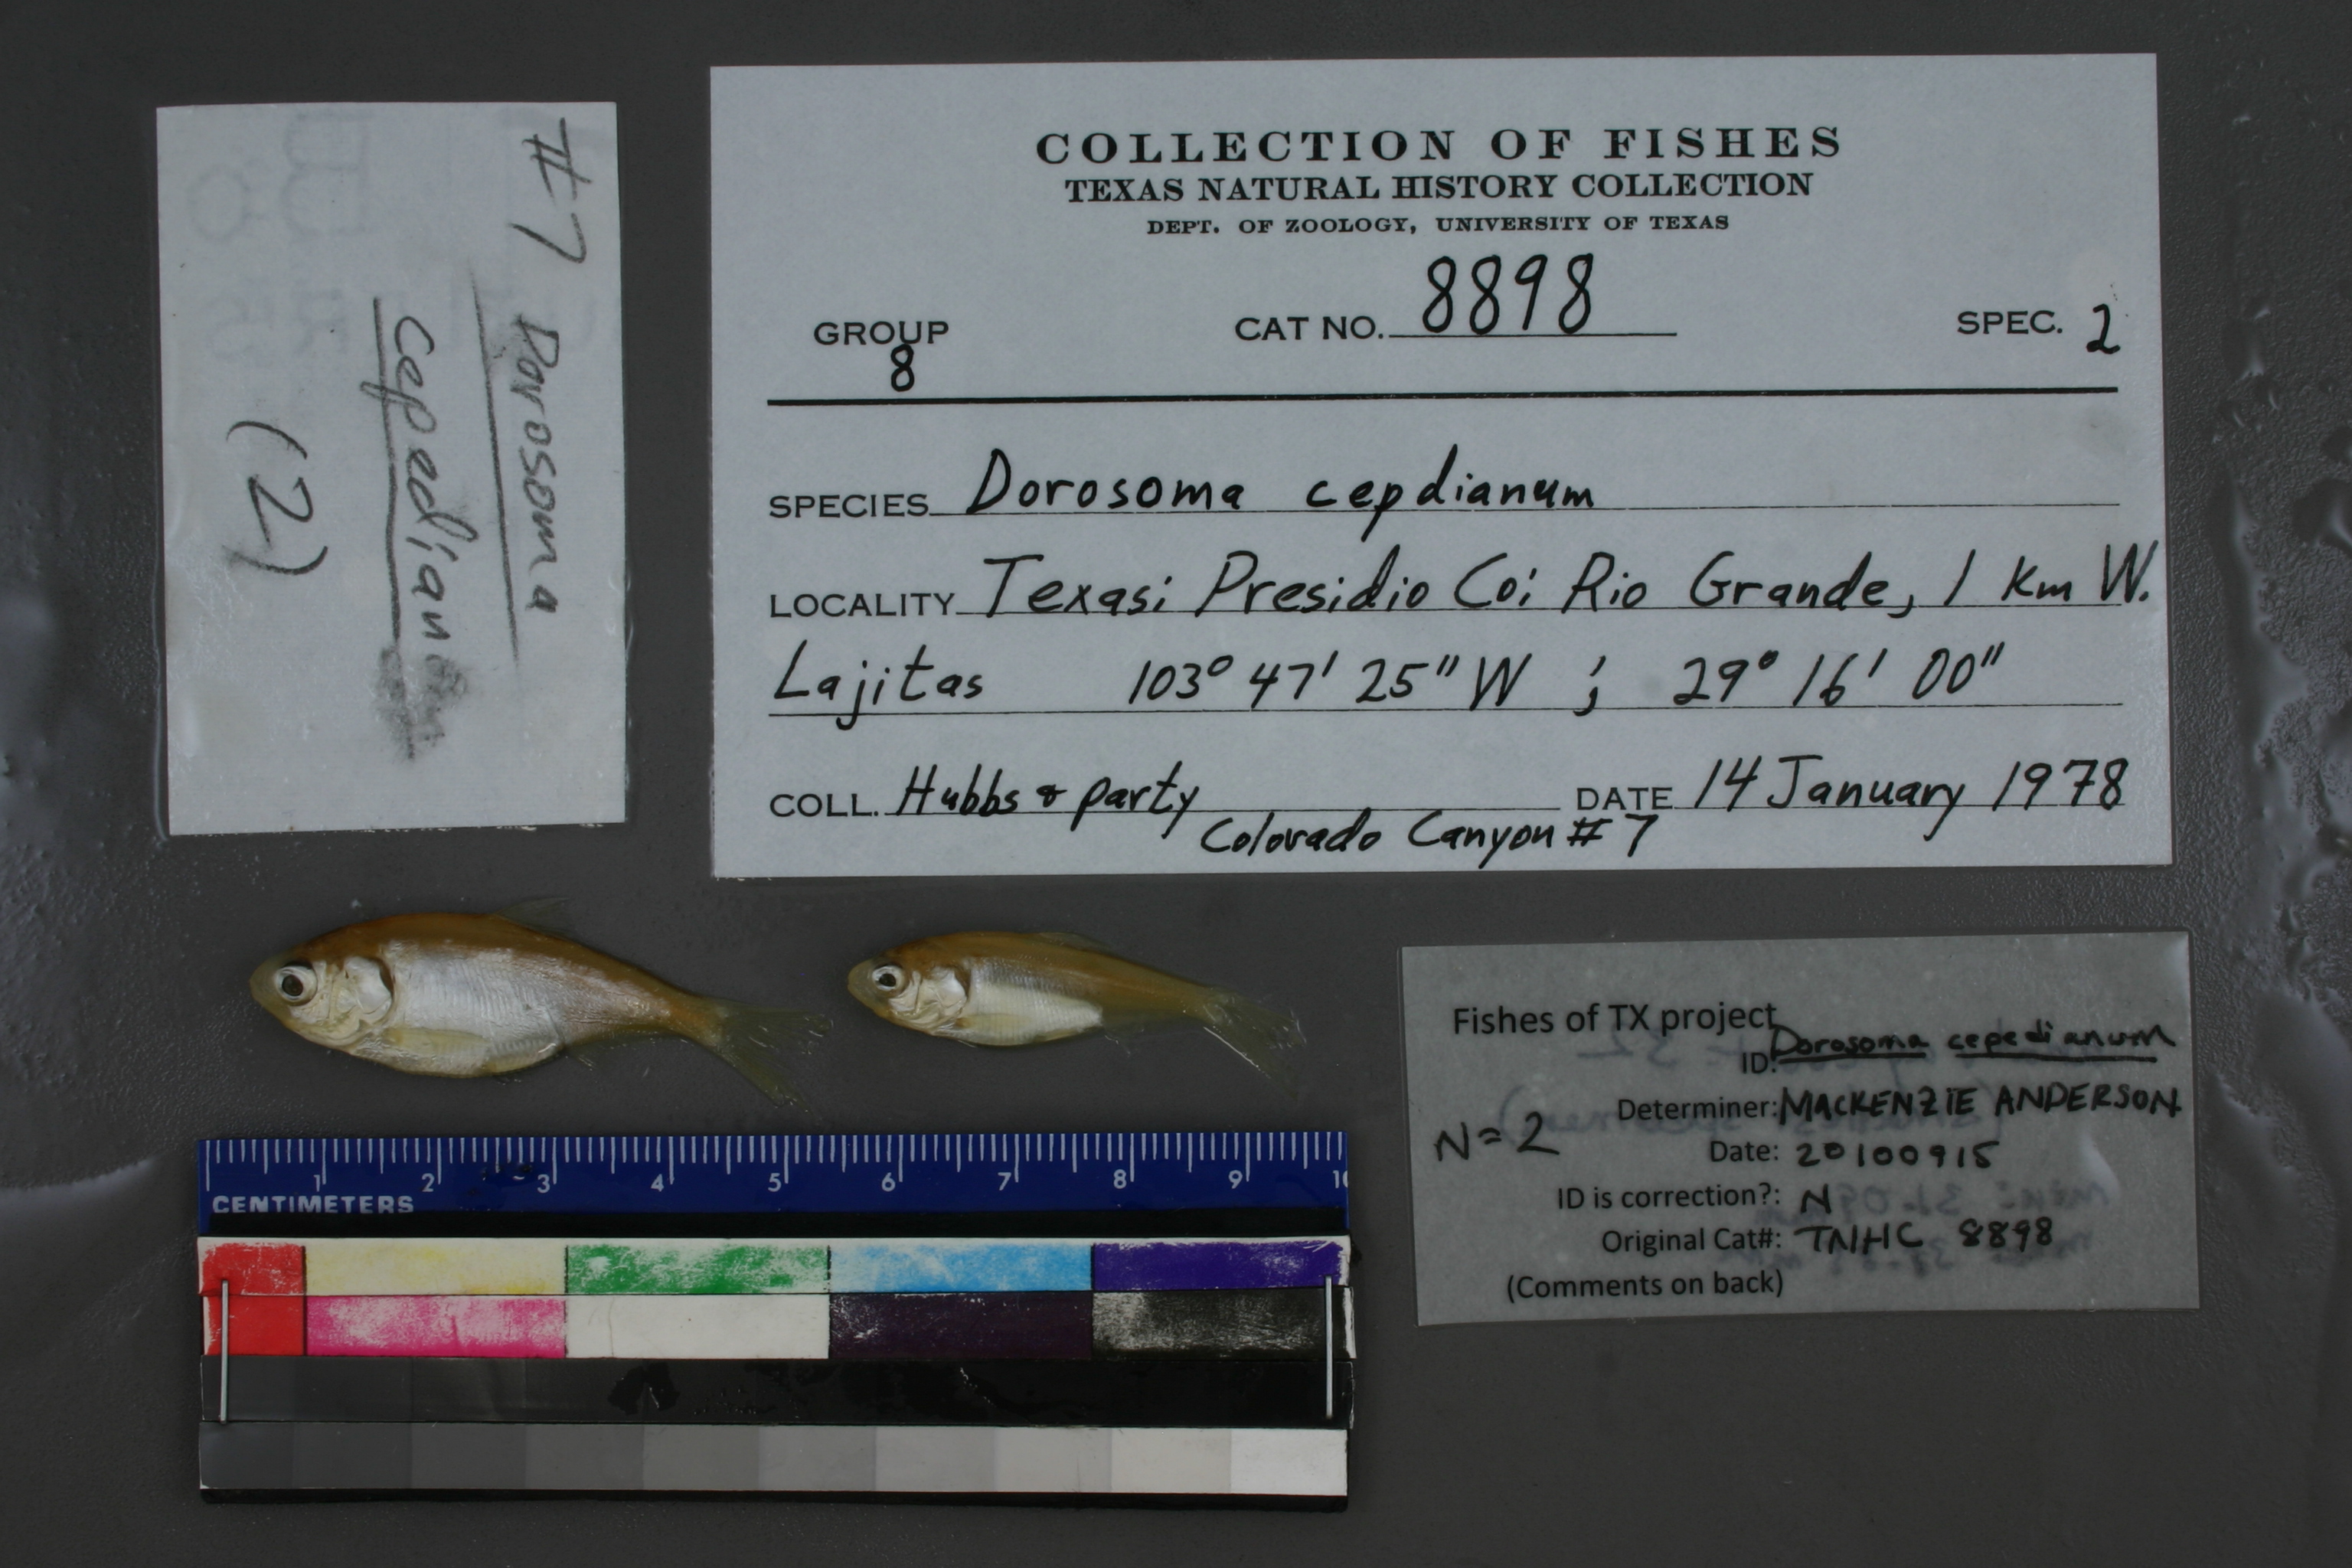 #7 Dorosoma
cepedianum
(2)
COLLECTION OF FISHES
TEXAS NATURAL HISTORY COLLECTION
DEPT. OF ZOOLOGY, UNIVERSITY OF TEXAS
GROUP CAT NO. 8898 SPEC. 2
8
SPECIES Dorosoma cepdianum
LOCALITY Texas; Presidio Co; Rio Grande, 1 Km W.
Lajitas 103° 47' 25" W ; 29° 16' 00"
COLL. Hubbs & party DATE 14 January 1978
Colorado Canyon # 7
Fishes of TX project
ID: Dorosoma cepedianum
Determiner: MACKENZIE ANDERSON
N=2
Date: 20100915
ID is correction?: N
Original Cat#: TNHC 8898
(Comments on back)
1 2 3 4 5 6 7 8 9 10
CENTIMETERS